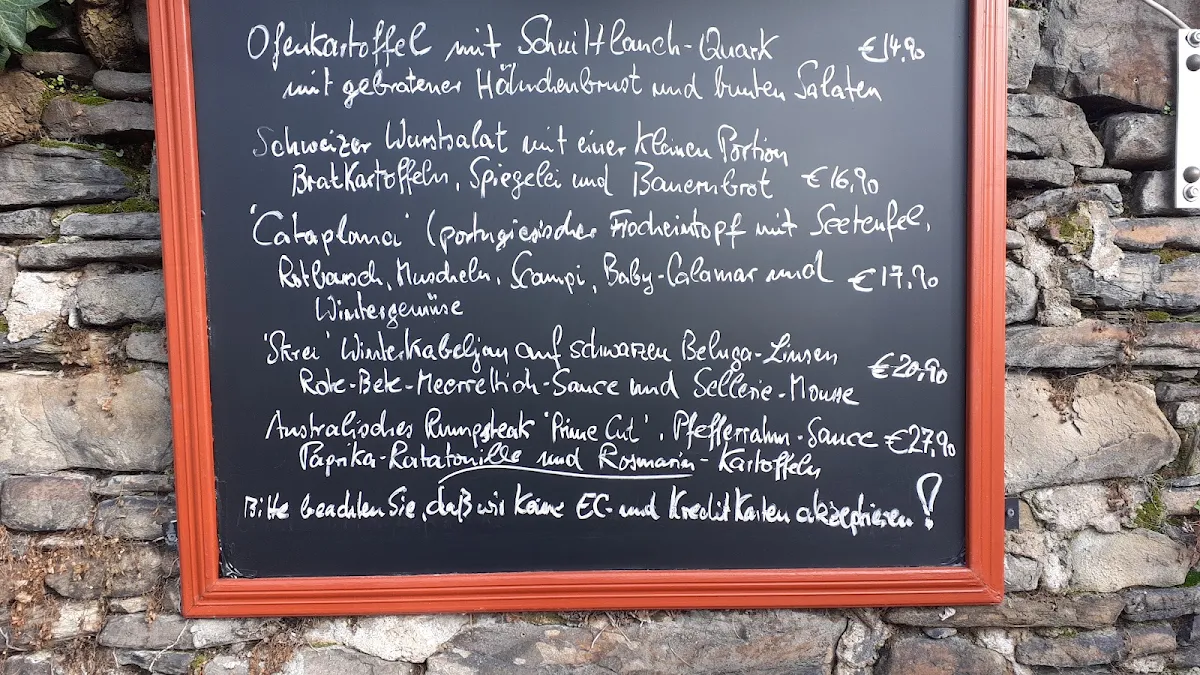 Ofenkartoffel mit Schnittlauch-Quark €14,90
mit gebratener Hähnchenbrust und bunten Salaten
Schweizer Wurstsalat mit einer kleinen Portion
Bratkartoffeln, Spiegelei und Bauernbrot €16,90
'Cataplana' (portugiesischer Fischeintopf mit Seeteufel,
Rotbarsch, Muscheln, Scampi, Baby-Calamar und €17,90
Wintergemüse
'Skrei' Winterkabeljau auf schwarzen Beluga-Linsen €20,90
Rote-Bete-Meerrettich-Sauce und Sellerie-Mousse
Australisches Rumpsteak 'Prime Cut', Pfefferrahm-Sauce €27,90
Paprika-Ratatouille und Rosmarin-Kartoffeln
Bitte beachten Sie, daß wir keine EC- und Kreditkarten akzeptieren!